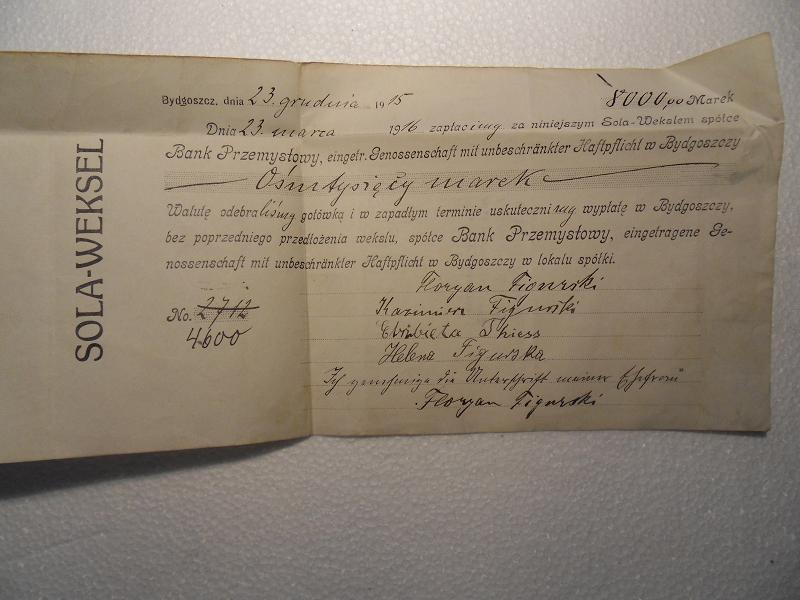 SOLA-WEKSEL
Bydgoszcz, dnia 23. grudnia 1915 8000,00 Marek
Dnia 23. marca 1916 zapłacimy za niniejszym Sola-Wekslem spółce
Bank Przemysłowy, eingetr. Genossenschaft mit unbeschränkter Haftpflicht w Bydgoszczy
Ośmtysięcy marek
Walutę odebraliśmy gotówką i w zapadłym terminie uskutecznimy wypłatę w Bydgoszczy,
bez poprzedniego przedłożenia wekslu, spółce Bank Przemysłowy, eingetragene Ge-
nossenschaft mit unbeschränkter Haftpflicht w Bydgoszczy w lokalu spółki.
Floryan Figurski
No. 2712 Kazimierz Figurski
4600 Elżbieta Thiess
Helena Figurska
Ich genehmige die Unterschrift meiner Ehefrau
Floryan Figurski